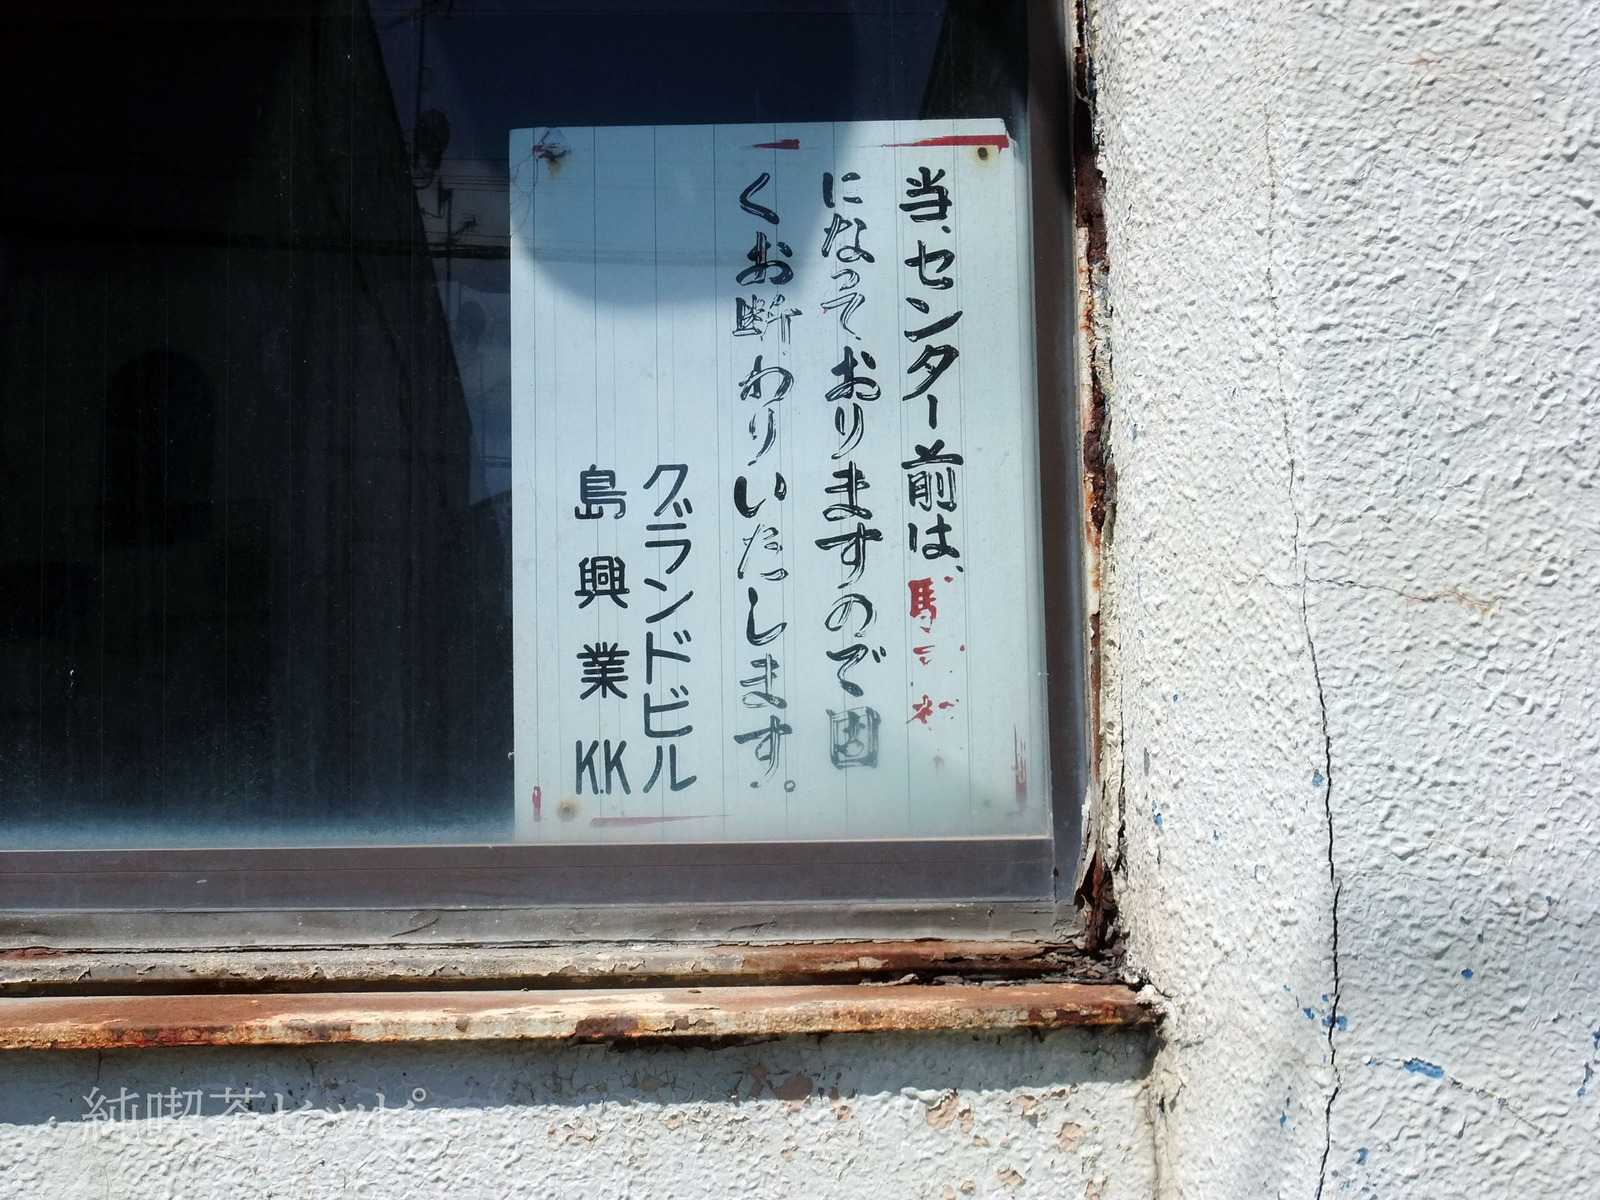 当、センター前は、
になっておりますので固
くお断わりいたします。
グランドビル
島興業K.K
純喫茶ヒッピ